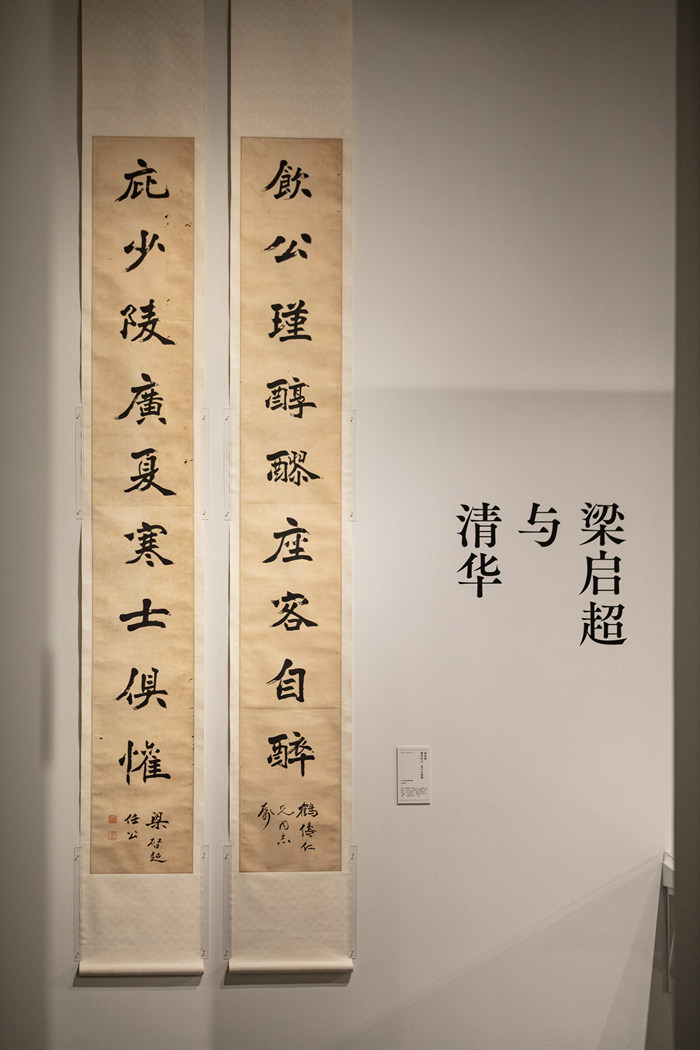 梁启超
与
清华
飲公瑾醇醪座客自醉
鶴儔仁
兄同志
庇少陵廣夏寒士俱懽
梁啟超
任公